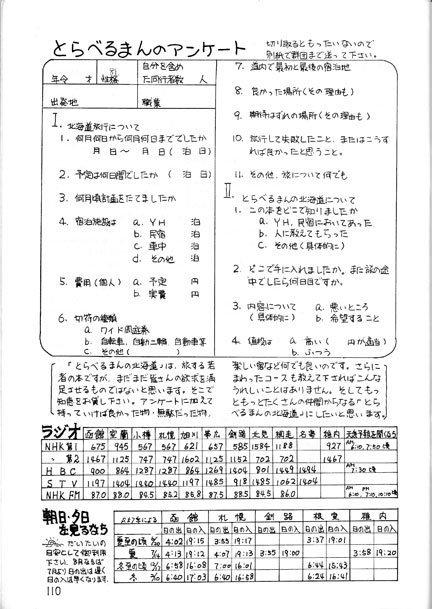 とらべるまんのアンケート
切り取るともったいないので
別紙で群団まで送って下さい。
年令　才　性格　自分を含め
た同行者数　人
出発地　職業
Ⅰ. 北海道旅行について
1. 何月何日から何月何日まででしたか
月　日〜　月　日（　泊　日）
2. 予定は何日間でしたか（　泊　日）
3. 何月頃計画をたてましたか
4. 宿泊施設は　a. YH　泊
b. 民宿　泊
c. 車中　泊
d. その他　泊
5. 費用（個人）　a. 予定　円
b. 実費　円
6. 切符の種類
a. ワイド周遊券
b. 自転車, 自動二輪, 自動車等
c. その他（　）
7. 道内で最初と最後の宿泊地
8. 良かった場所（その理由も）
9. 期待はずれの場所（その理由も）
10. 旅行して失敗したこと、またはこうす
れば良かったと思うこと。
11. その他、旅について何でも
Ⅱ. とらべるまんの北海道について
1. この本をどこで知りましたか
a. YH, 民宿においてあった
b. 人に教えてもらった
c. その他（具体的に）
2. どこで手に入れましたか。また旅の途
中でしたら何日目ですか。
3. 内容について　a. 悪いところ
（具体的に）　b. 希望すること
4. 値段は　a. 高い（　円が適当）
b. ふつう
「とらべるまんの北海道」は、旅する若
者の本ですが、まだまだ皆さんの欲求を満
足させるものではないと思います。そこで
知恵をお貸し下さい。アンケートに加えて
持っていけば良かった物・無駄だった物、
楽しい宿など何でも良いのです。さらに
まわったコースも教えて下さればこんな
うれしいことはありません。そしてもっ
ともっとたくさんの仲間からなる「とら
べるまんの北海道」にしたいと思います。
ラジオ　函館　室蘭　小樽　札幌　旭川　帯広　釧路　北見　網走　名寄　稚内　天気予報を聞くなら
NHK第1　675　945　567　567　621　603　585　1584　1188　927
〃 第2　1467　1125　747　747　1602　1125　1152　702　702　1467
HBC　900　864　1287　1287　864　1269　1404　801　1449　1494
STV　1197　1404　1440　1440　1197　1485　918　1485　1062　1404
NHK FM　87.0　88.0　84.5　85.2　85.8　87.5　88.5　84.5　86.0
朝日・夕日
を見るなら
だいたいの
目安として御利用
下さい。
日の入は早くなります。
函館　札幌　釧路　根室　稚内
日の出　日の入　日の出　日の入　日の出　日の入　日の出　日の入　日の出　日の入
4:02　19:15　3:55　19:17　3:37　19:01
4:13　19:12　4:07　19:13　3:55　19:00　3:58　19:20
6:58　16:08　7:00　16:01　6:44　15:43
6:40　17:03　6:40　16:58　6:24　16:41
110